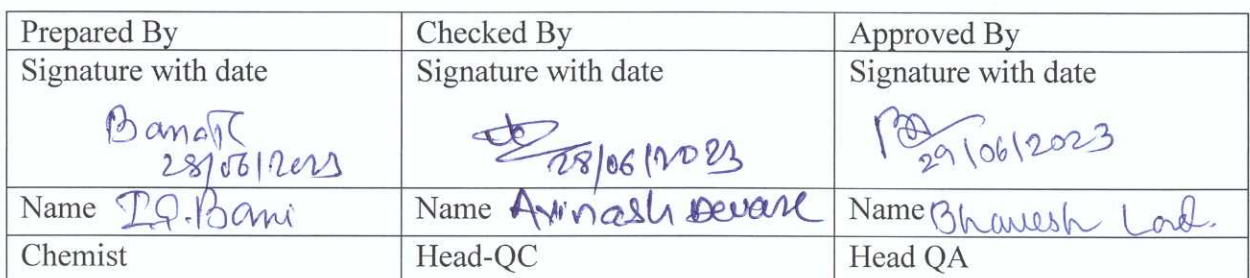 Prepared By Checked By Approved By
Signature with date Signature with date Signature with date
28/06/2023 28/06/2023 29/06/2023
Name I.Q.Bami Name Avinash Devare Name Bhavesh Lad.
Chemist Head-QC Head QA